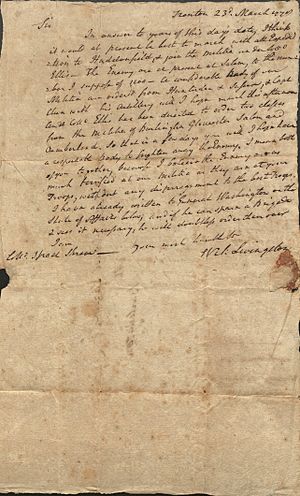 Trenton 23d. March 1778
Sir
In answer to yours of this days date, I think
it would at present be best to march with all Expedi
=tion to Haddonfield, & join the militia under Coll.
Ellis. The Enemy are at present at Salem, to the num
=ber I suppose of 1200. A considerable Body of our
Militia are ordered from Hunterdon &
them with his Artillery will I hope march this afternoon
and Coll. Ellis has been directed to order two classes
from the Militia of Burlington Gloucester Salem and
Cumberland. So that in a few days you will I hope have
a respectable Body to frighten away the Enemy, I mean both
of you together, because I believe the Enemy are as
much terrified at our Militia as they are at your
Troops, without any disparagement to the best troops,
I have already written to General Washington on the
State of Affairs below, and if he can spare a Brigade
& sees it necessary, he will doubtless order them over
I am
Your most humble St.
Wil. Livingston
Col. Israel Shreve